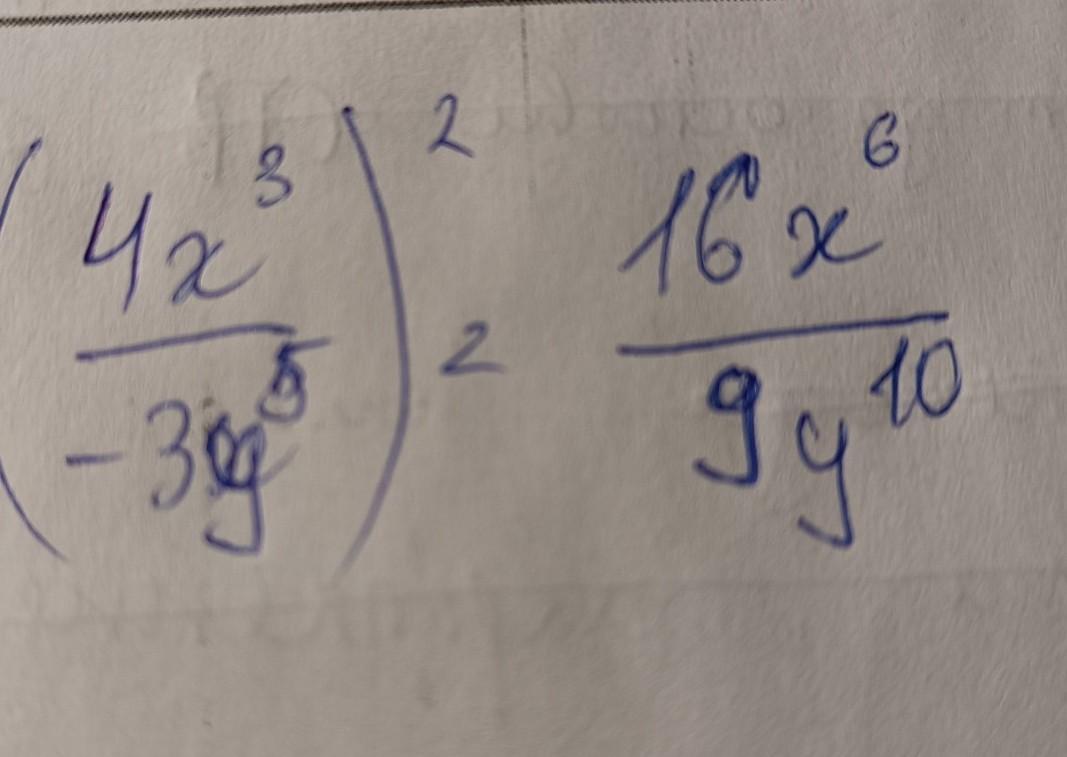 (4x³/-3y⁵)² = 16x⁶/9y¹⁰